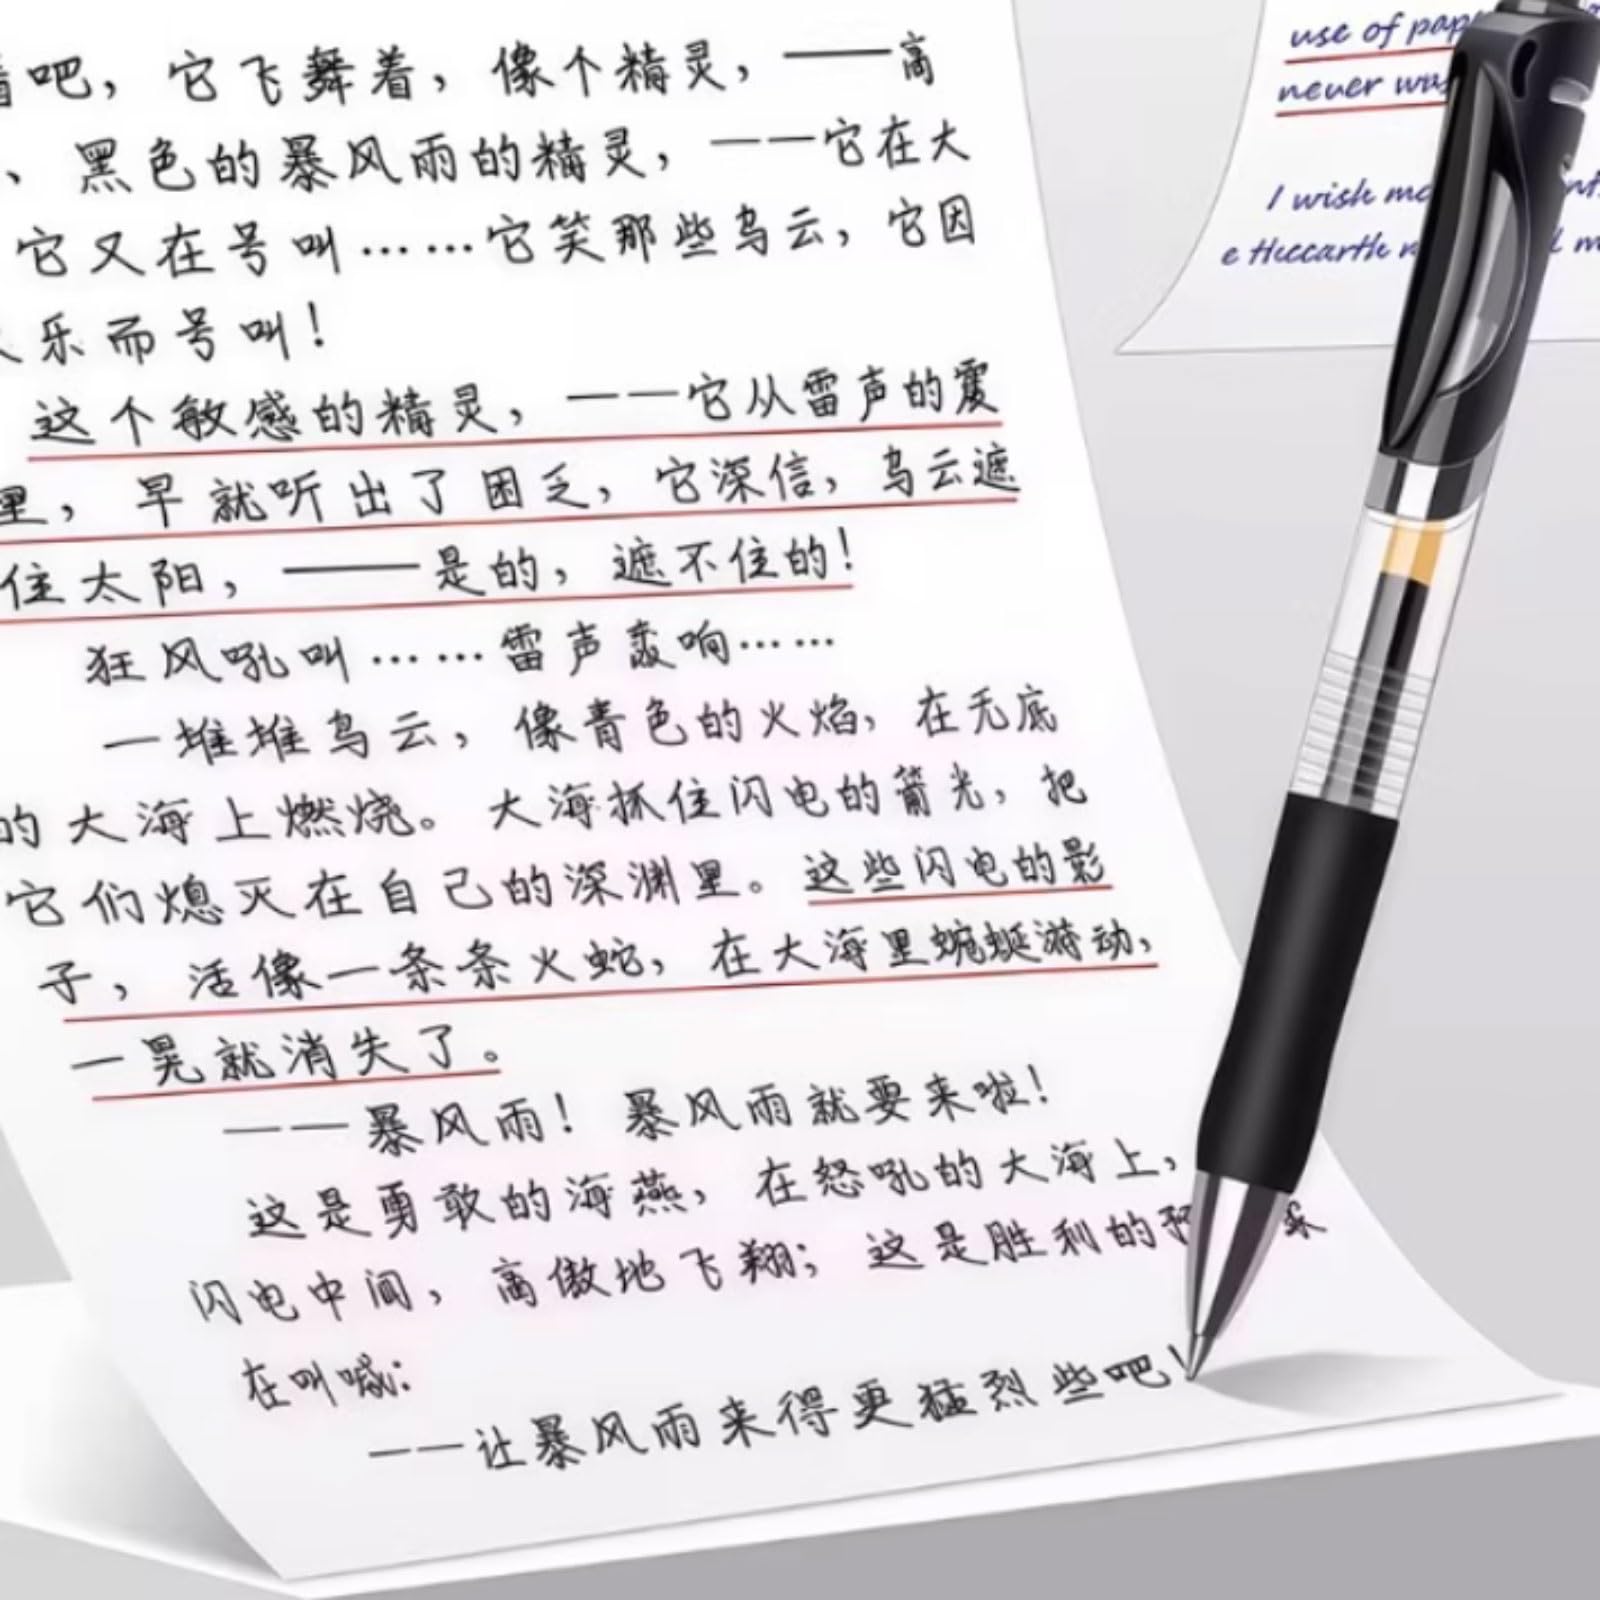 吧，它飞舞着，像个精灵，——高
、黑色的暴风雨的精灵，——它在大
它又在号叫……它笑那些乌云，它因
乐而号叫！
这个敏感的精灵，——它从雷声的震
里，早就听出了困乏，它深信，乌云遮
住太阳，——是的，遮不住的！
狂风吼叫……雷声轰响……
一堆堆乌云，像青色的火焰，在无底
的大海上燃烧。大海抓住闪电的箭光，把
它们熄灭在自己的深渊里。这些闪电的影
子，活像一条条火蛇，在大海里蜿蜒游动，
一晃就消失了。
——暴风雨！暴风雨就要来啦！
这是勇敢的海燕，在怒吼的大海上，
闪电中间，高傲地飞翔；这是胜利的预
在叫喊：
——让暴风雨来得更猛烈些吧！
use of pap
never was
I wish mo